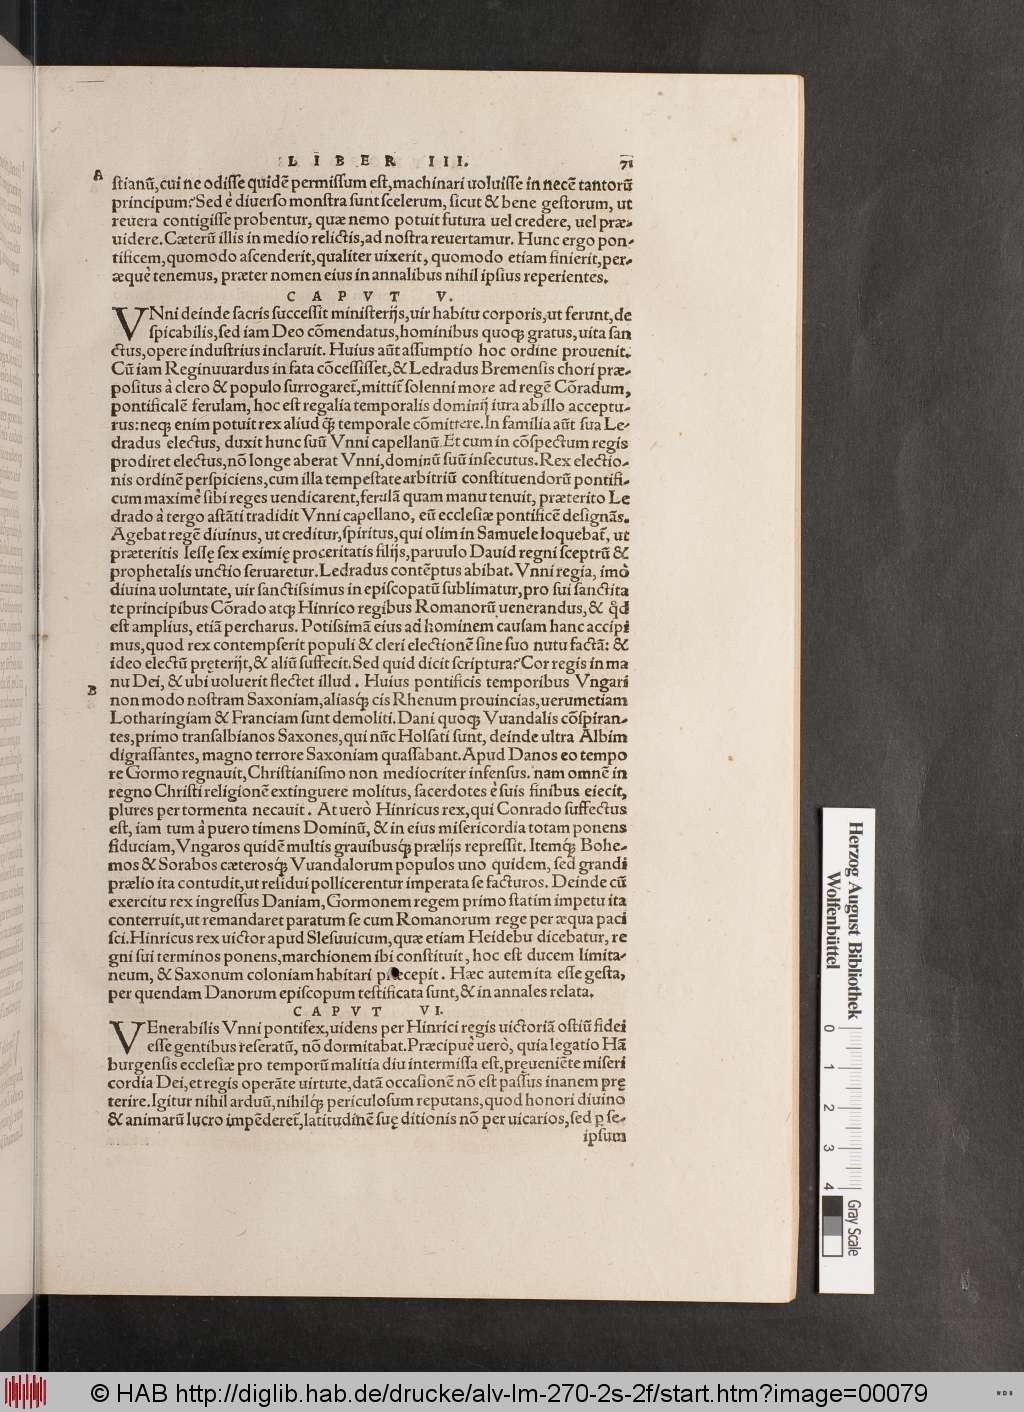 LIBER III. 71
A
stianũ,cui ne odisse quidẽ permissum est,machinari uoluisse in necẽ tantorũ
principum? Sed è diuerso monstra sunt scelerum, sicut & bene gestorum, ut
reuera contigisse probentur, quæ nemo potuit futura uel credere, uel præ-
uidere. Cæterũ illis in medio relictis,ad nostra reuertamur. Hunc ergo pon-
tificem,quomodo ascenderit,qualiter uixerit, quomodo etiam finierit,per-
æquè tenemus, præter nomen eius in annalibus nihil ipsius reperientes.
CAPVT V.
VNni deinde sacris successit ministerijs,uir habitu corporis,ut ferunt,de
spicabilis,sed iam Deo cõmendatus,hominibus quoqꝫ gratus,uita san
ctus,opere industrius inclaruit. Huius aũt assumptio hoc ordine prouenit.
Cũ iam Reginuuardus in fata cõcessisset,& Ledradus Bremensis chori præ-
positus à clero & populo surrogaret̃,mittit̃ solenni more ad regẽ Cõradum,
pontificalẽ ferulam, hoc est regalia temporalis dominij iura ab illo acceptu-
rus:neqꝫ enim potuit rex aliud q̃ꝫ temporale cõmittere.In familia aũt sua Le-
dradus electus, duxit hunc suũ Vnni capellanũ.Et cum in cõspectum regis
prodiret electus,nõ longe aberat Vnni,dominũ suũ insecutus.Rex electio-
nis ordinẽ perspiciens,cum illa tempestate arbitriũ constituendorũ pontifi-
cum maximè sibi reges uendicarent,ferulã quam manu tenuit, præterito Le
drado à tergo astãti tradidit Vnni capellano, eũ ecclesiæ pontificẽ designãs.
Agebat regẽ diuinus, ut creditur,spiritus,qui olim in Samuele loquebat̃, ut
præteritis Iessę sex eximię proceritatis filijs,paruulo Dauid regni sceptrũ &
prophetalis unctio seruaretur.Ledradus contẽptus abibat.Vnni regia, imò
diuina uoluntate, uir sanctissimus in episcopatũ sublimatur,pro sui sanctita
te principibus Cõrado atqꝫ Hinrico regibus Romanorũ uenerandus,& q̃d
est amplius, etiã percharus. Potissimã eius ad hominem causam hanc accipi
mus,quod rex contempserit populi & cleri electionẽ sine suo nutu factã: &
ideo electũ pręterijt,& aliũ suffecit.Sed quid dicit scriptura? Cor regis in ma
B
nu Dei, & ubi uoluerit flectet illud . Huius pontificis temporibus Vngari
non modo nostram Saxoniam,aliasq̃ꝫ cis Rhenum prouincias,uerumetiam
Lotharingiam & Franciam sunt demoliti.Dani quoqꝫ Vuandalis cõspiran-
tes,primo transalbianos Saxones,qui nũc Holsati sunt, deinde ultra Albim
digrassantes, magno terrore Saxoniam quassabant.Apud Danos eo tempo
re Gormo regnauit,Christianismo non mediocriter infensus. nam omnẽ in
regno Christi religionẽ extinguere molitus, sacerdotes è suis finibus eiecit,
plures per tormenta necauit . At uerò Hinricus rex,qui Conrado suffectus
est, iam tum à puero timens Dominũ, & in eius misericordia totam ponens
fiduciam,Vngaros quidẽ multis grauibusq̃ꝫ prælijs repressit. Itemq̃ꝫ Bohe-
mos & Sorabos cæterosq̃ꝫ Vuandalorum populos uno quidem, sed grandi
prælio ita contudit,ut residui pollicerentur imperata se facturos. Deinde cũ
exercitu rex ingressus Daniam, Gormonem regem primo statim impetu ita
conterruit,ut remandaret paratum se cum Romanorum rege per æqua paci
sci.Hinricus rex uictor apud Slesuuicum,quæ etiam Heidebu dicebatur, re
gni sui terminos ponens,marchionem ibi constituit, hoc est ducem limita-
neum, & Saxonum coloniam habitari præcepit . Hæc autem ita esse gesta,
per quendam Danorum episcopum testificata sunt,& in annales relata.
CAPVT VI.
VEnerabilis Vnni pontifex,uidens per Hinrici regis uictoriã ostiũ fidei
esse gentibus reseratũ, nõ dormitabat.Præcipuè uerò, quia legatio Hã
burgensis ecclesiæ pro temporũ malitia diu intermissa est,pręueniẽte miseri
cordia Dei,et regis operãte uirtute,datã occasionẽ nõ est passus inanem prę
terire.Igitur nihil arduũ,nihilq̃ꝫ periculosum reputans,quod honori diuino
& animarũ lucro impẽderet̃,latitudinẽ suę ditionis nõ per uicarios,sed ꝑ se-
ipsum
Herzog August Bibliothek
Wolfenbüttel
0 1 2 3 4
Gray Scale
© HAB http://diglib.hab.de/drucke/alv-lm-270-2s-2f/start.htm?image=00079
WDB